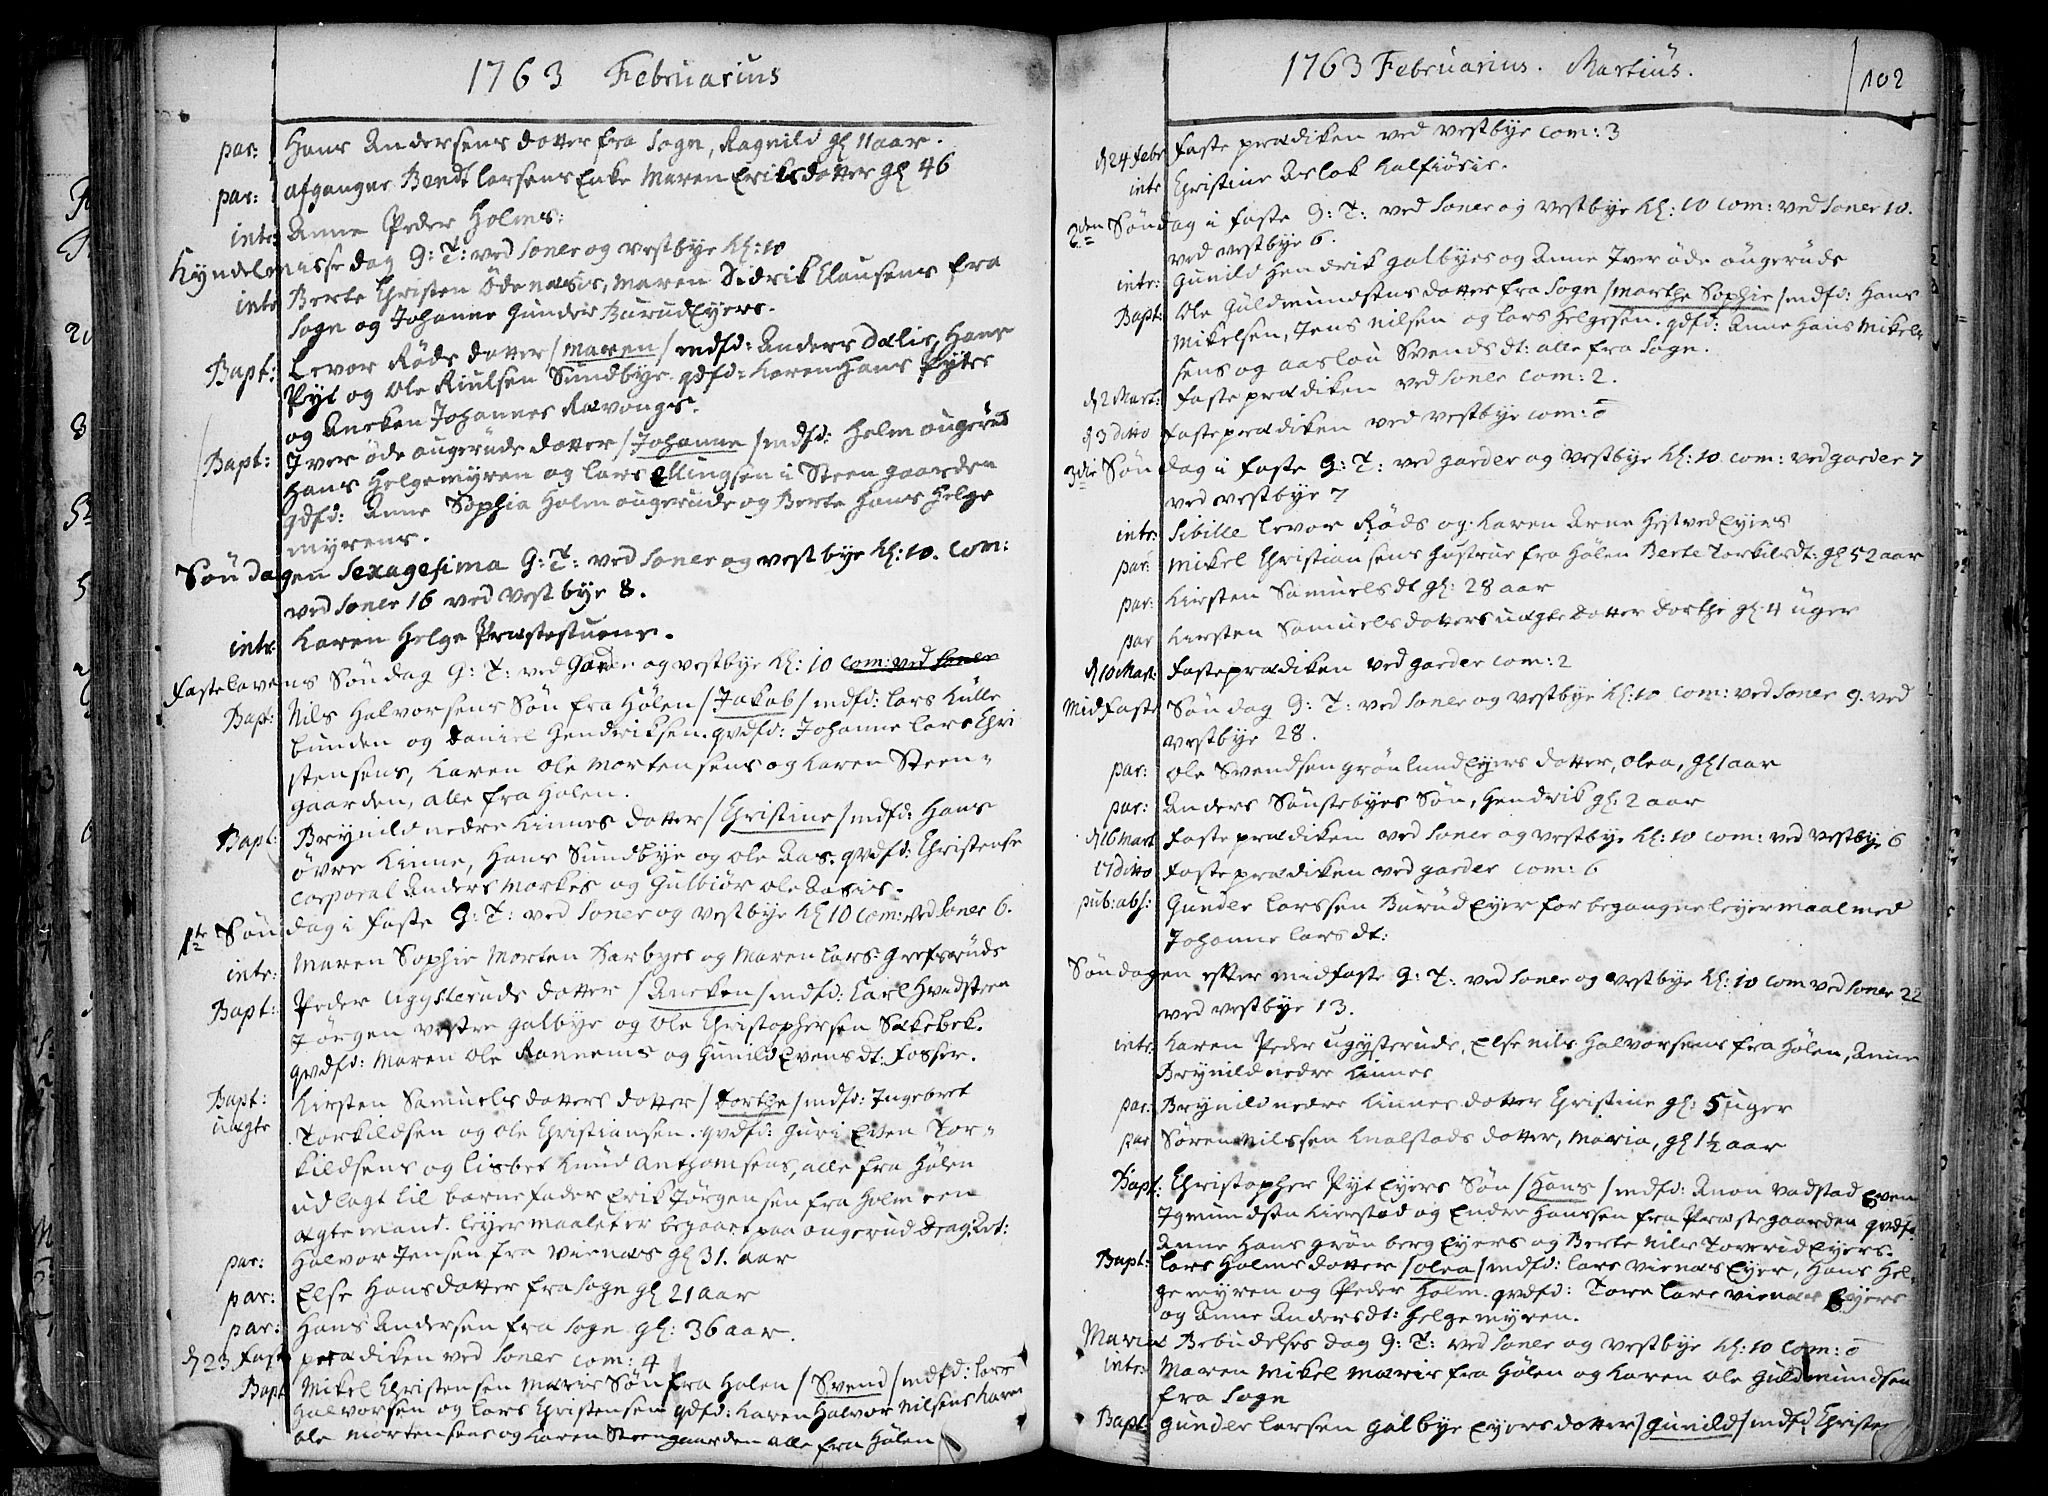 1763 Februarius
par: Hans Andersens dotter fra Sogn, Ragnild gl 11 aar.
par: afgangne Bendt Larsens Enke Maren Eriksdotter gl 46
intr: Anne Peder Holms:
Kyndelmisse dag G: T: ved Soner og Vestbye Kl: 10
intr Berte Christen Ødenæsis, Maren Didrik Clausens fra
Sogn og Johanne Gunder Burud Eyers.
Bapt: Levor Røds dotter / Maren / mdfd: Anders Dælis, Hans
Pyt og Ole Riulsen Sundbye. qdfd: Karen Hans Pyts
og Aneken Johannes Ravongs.
Bapt: Iver øde ougerude dotter / Johanne / mdfd: Holm ougerud
Hans Helgemyren og Lars Ellingsen i Steengaarden
qdfd: Anne Sophia Holm ougerude og Berte Hans Helge
myrens.
Søndagen Sexagesima G: T: ved Soner og Vestbye Kl: 10. Com:
ved Soner 16 ved Vestbye 8.
intr. Karen Helge Præstestuens.
Fastelavens Søndag G: T: ved Garder og Vestbye Kl: 10 com: ved Soner
Bapt: Nils Halvorsens Søn fra Hølen / Jakob / mdfd: Lars Kulle
bunden og Daniel Hendriksen. qvdfd: Johanne Lars Chri
stensens, Karen Ole Mortensens og Karen Steen-
gaarden, alle fra Hølen.
Bapt: Brynild nedre Kinnes dotter / Christine / mdfd: Hans
øvre Kinne, Hans Sundbye og Ole Aas. qvdfd: Christense
Corporal Anders Morkes og Gulbiør Ole Aasis.
1te Søndag i Faste G: T: ved Soner og Vestbye Kl 10 Com: ved Soner 6.
intr: Maren Sophie Morten Darbyes og Maren Lars Grefsruds
Bapt: Peder Ugysteruds dotter / Aneken / mdfd: Carl Hvidsteen
Jørgen Vestre Galbye og Ole Christophersen Sækebek.
qvdfd: Maren Ole Rannems og Gunild Evensdt: Fosser.
Bapt: Kirsten Samuelsdotters dotter / Dorthe / mdfd: Ingebret
uægte Torkildsen og Ole Christiansen. qvdfd: Guri Even Tor-
kildsens og Lisbet Knud Anthomsens, alle fra Hølen
udlagt til barnefader Erik Jørgensen fra Holm een
ægte mand. Leyermaalet er begaaet paa ongerud
par: Halvor Jensen fra Viernæs gl 31. aar
par: Else Hansdotter fra Sogn gl 21 aar
par: Hans Andersen fra Sogn gl: 36 aar.
d 23 Fasteprædiken ved Soner com: 4
Bapt Mikel Christensen Mæris Søn fra Hølen / Svend / mdfd: Lars
Halvorsen og Lars Christensen qdfd: Karen Halvor Nilsens Karen
Ole Mortensens og Karen Steengaarden alle fra Hølen
1763 Februarius. Martius. 102
d 24 Febr Faste prædiken ved Vestbye Com: 3
intr Christine Aslak Kalfiøsis.
2den Søndag i Faste G: T: ved Soner og Vestbye Kl: 10 Com: ved Soner 10.
ved Vestbye 6.
intr: Gunild Hendrik Galbyes og Anne Iver øde ougeruds
Bapt: Ole Guldmundsens dotter fra Sogn / Marthe Sophie / mdfd: Hans
Mikelsen, Jens Nilsen og Lars Helgesen. qdfd: Anne Hans Mikel-
sens og Aaslou Svends dt: alle fra Sogn.
d 2 Mart: Faste prædiken ved Soner Com: 2.
d 3 ditto Faste prædiken ved Vestbye com: 0
3die Søndag i Faste G: T: ved Garder og Vestbye Kl: 10 com: ved Garder 7
ved Vestbye 7
intr: Sibille Levor Røds og Karen Arne Hestved Eyers
par: Mikel Christiansens Hustrue fra Hølen Berte Torkilsdt: gl 52 aar
par: Kirsten Samuelsdt gl: 28 aar
par Kirsten Samuelsdotters uægte dotter Dorthe gl 4 uger
d 10 Mart: Fasteprædiken ved Garder com: 2
Midfaste Søndag G: T: ved Soner og Vestbye Kl: 10 com: ved Soner 9. ved
Vestbye 28.
par: Ole Svendsen Grønlund Eyers dotter, Olea, gl 1 aar
par: Anders Sønstebyes Søn, Hendrik gl: 2 aar
d 16 Mart Faste prædiken ved Soner og Vestbye Kl: 10 Com: ved Vestbye 6
17 ditto Fasteprædiken ved Garder com: 6
pub: abs: Gunder Larssen Burud Eyer for begangne leyermaal med
Johanne Lars dt:
Søndagen efter Midfaste G: T: ved Soner og Vestbye Kl: 10 Com ved Soner 22
ved Vestbye 13.
intr: Karen Peder Ugysteruds, Else Nils Halvorsens fra Hølen, Anne
Brynild nedre Kinnes
par: Brynild nedre Kinnes dotter Christine gl: 5 uger
par Søren Nilssen Knalstads dotter, Maria, gl 1½ aar
Bapt: Christopher Pyt Eyers Søn / Hans / mdfd: Amon Vadstad Even
Igmundsen Kierstad og Endre Hanssen fra Præstegaarden qvdfd:
Anne Hans Grønberg Eyers og Berte Nils Toverud Eyers.
Bapt: Lars Holms dotter / Olea / mdfd: Lars Viernæs Eyer, Hans Hel-
ge myren og Peder Holm. qvdfd: Tore Lars Viernæs Eyers
og Anne Andersdt: Helgemyren.
Mariæ Bebudelses dag G: T: ved Soner og Vestbye Kl: 10 Com: 0
intr: Maren Mikel Mæris fra Hølen og Karen Ole Guldmundsen
fra Sogn
Bapt: Gunder Larsen Galbye Eyers dotter / Gunild / mdfd Christe